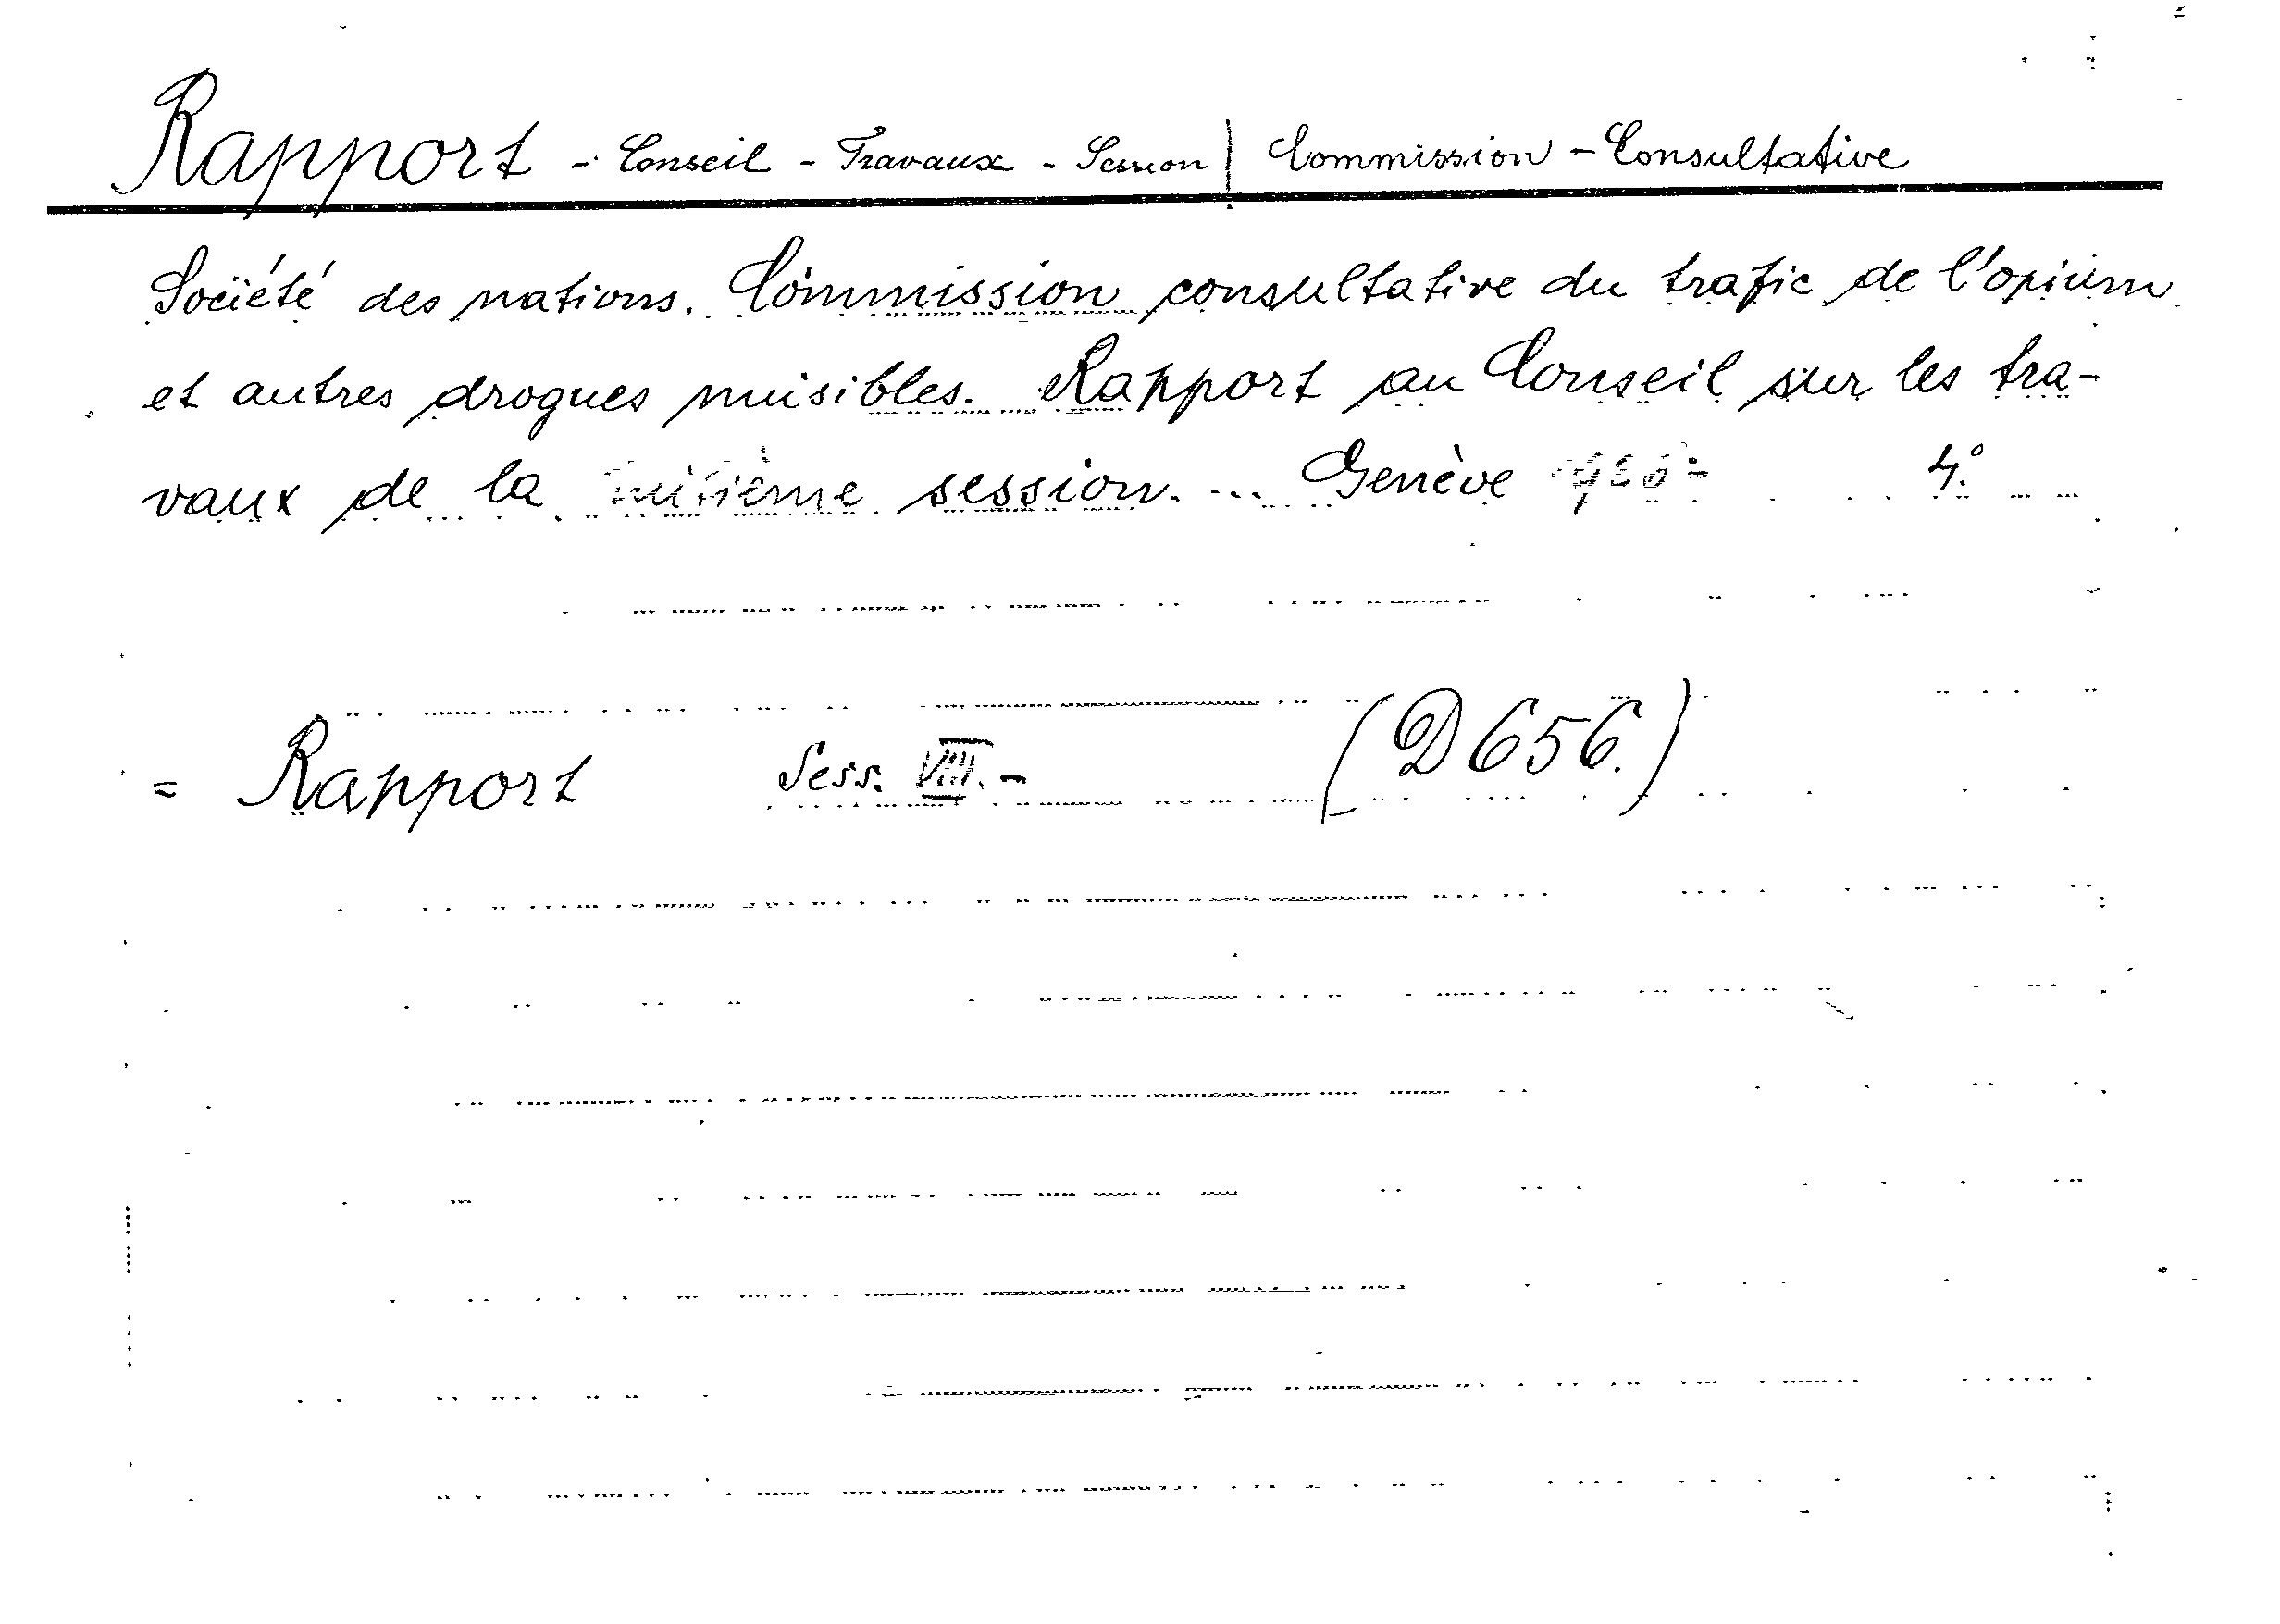 Rapport - Conseil - Travaux - Session | Commission - Consultative
Société des nations. Commission consultative du trafic de l'opium
et autres drogues nuisibles. Rapport au Conseil sur les tra-
vaux de la huitième session. ... Genève 4°
= Rapport Sess. VIII.- (D 656.)